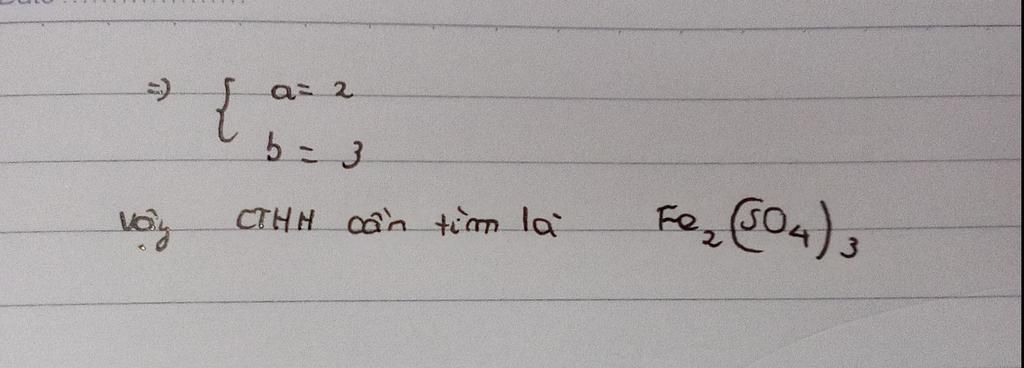 => { a = 2
b = 3
Vậy CTHH cần tìm là Fe₂(SO₄)₃